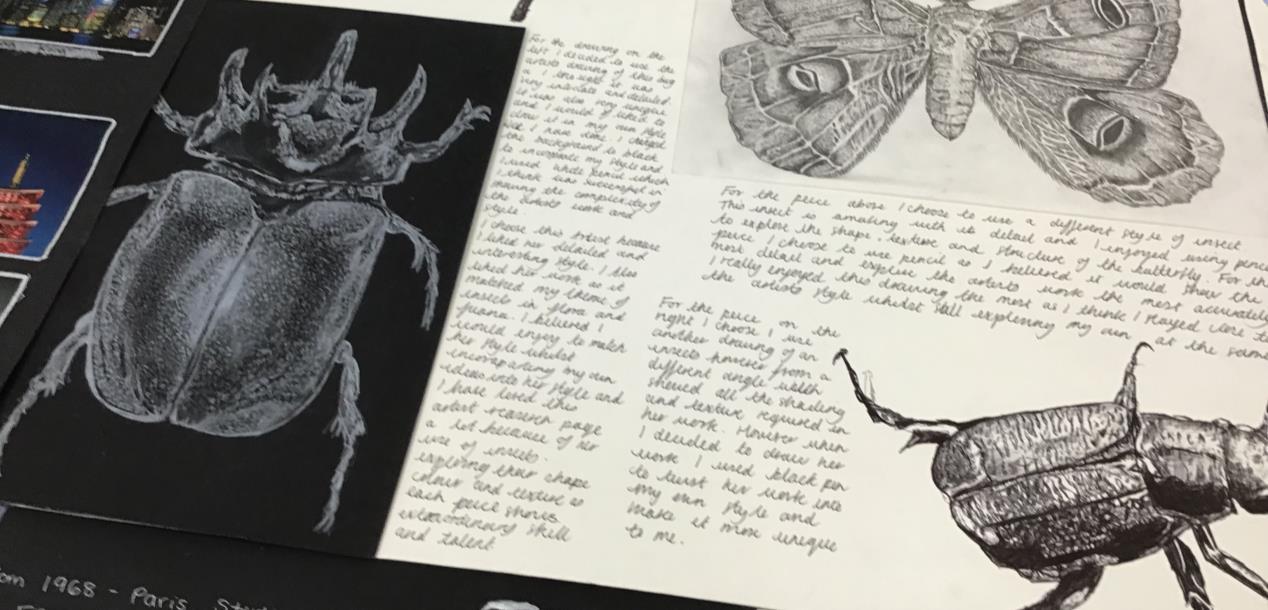 For the drawing on the
left I decided to use the
artists drawing of this bug
as I thought it was
very intricate and detailed
it was also very unique
and I would of liked to
draw it in my own style
like I have done. I changed
the background to black
to incorporate my style and
I used white pencil which
I think was successful in
showing the complexity of
the artists work and
style.
I choose this artist because
I liked her detailed and
interesting style. I also
liked her work as it
matched my theme of
insects in flora and
fauna. I believed I
would enjoy to match
her style whilst
incorporating my own
ideas into her style and
I have loved this
artist research page
a lot because of her
use of insects.
exploring their shape
colour and texture so
each peice shows
extraordinary skill
and talent.
For the peice above I choose to use a different style of insect
This insect is amazing with its detail and I enjoyed using pencil
to explore the shape, texture and structure of the butterfly. For this
peice I choose to use pencil as I believed it would show the
most detail and explore the artists work the most accurately
I really enjoyed this drawing the most as I think I stayed
the artists style whilst still exploring my own at the same
For the peice on the
right I choose I use
another drawing of an
insects however from a
different angle which
showed all the shading
and texture required in
her work. However when
I decided to draw her
work I used black pen
to twist her work into
my own style and
make it more unique
to me.
om 1968 - Paris